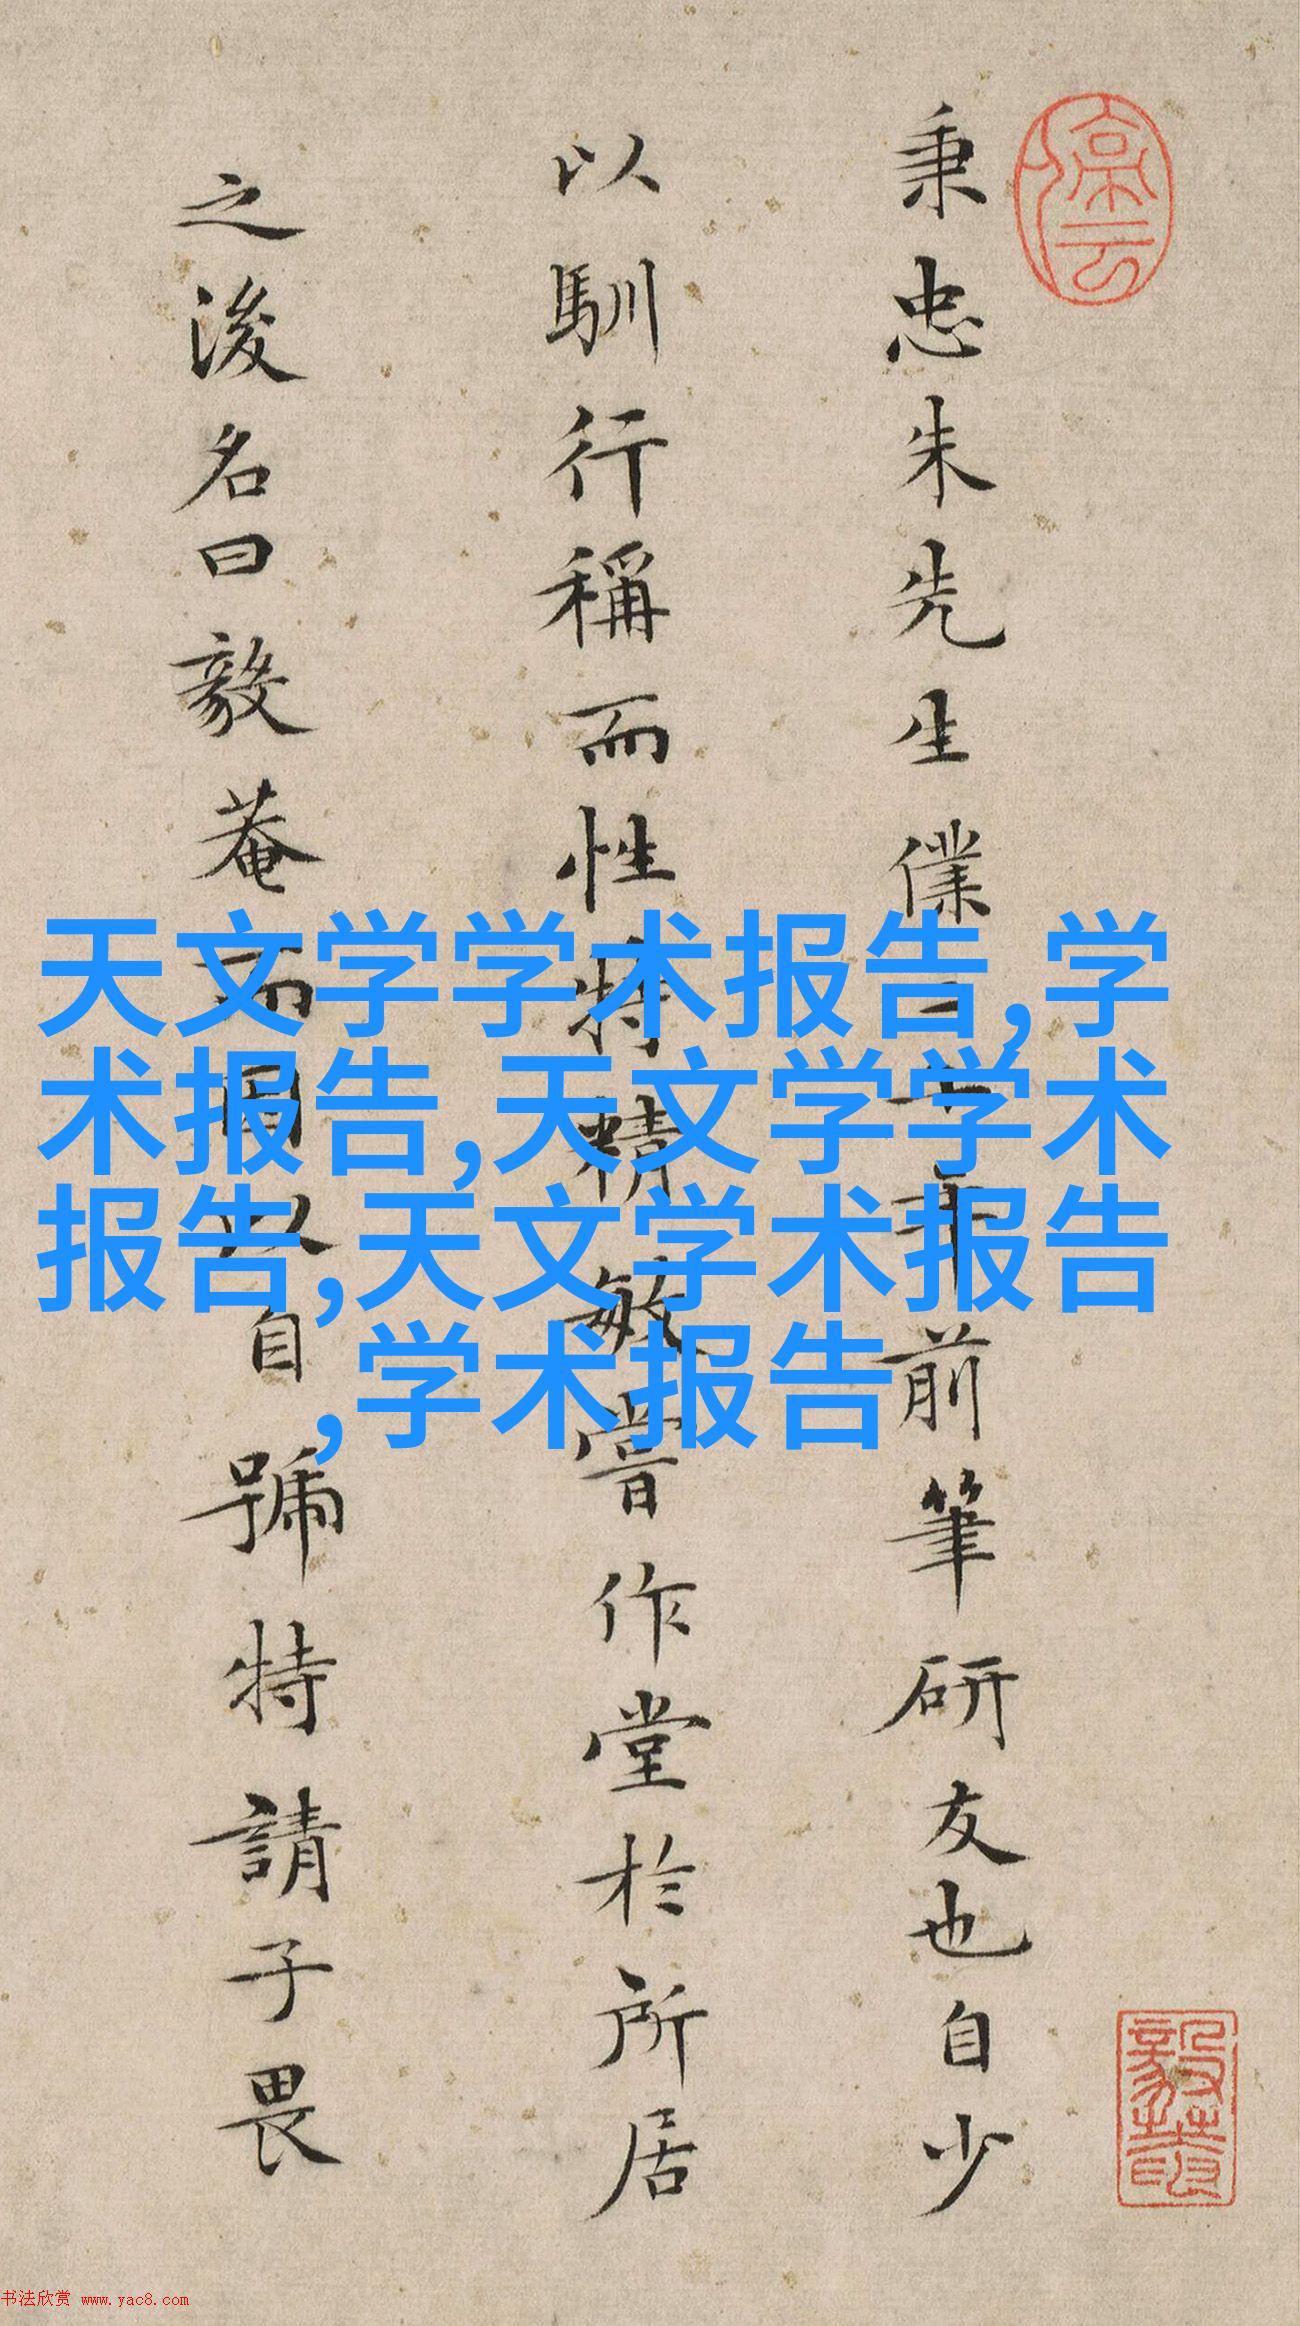 停云
秉忠朱先生僕十年前筆研友也自少
以馴行稱而性特精敏嘗作堂於所居
之後名曰毅菴而因以自號特請子畏
天文学学术报告,学
术报告,天文学学术
报告,天文学术报告
,学术报告
书法欣赏 www.yac8.com